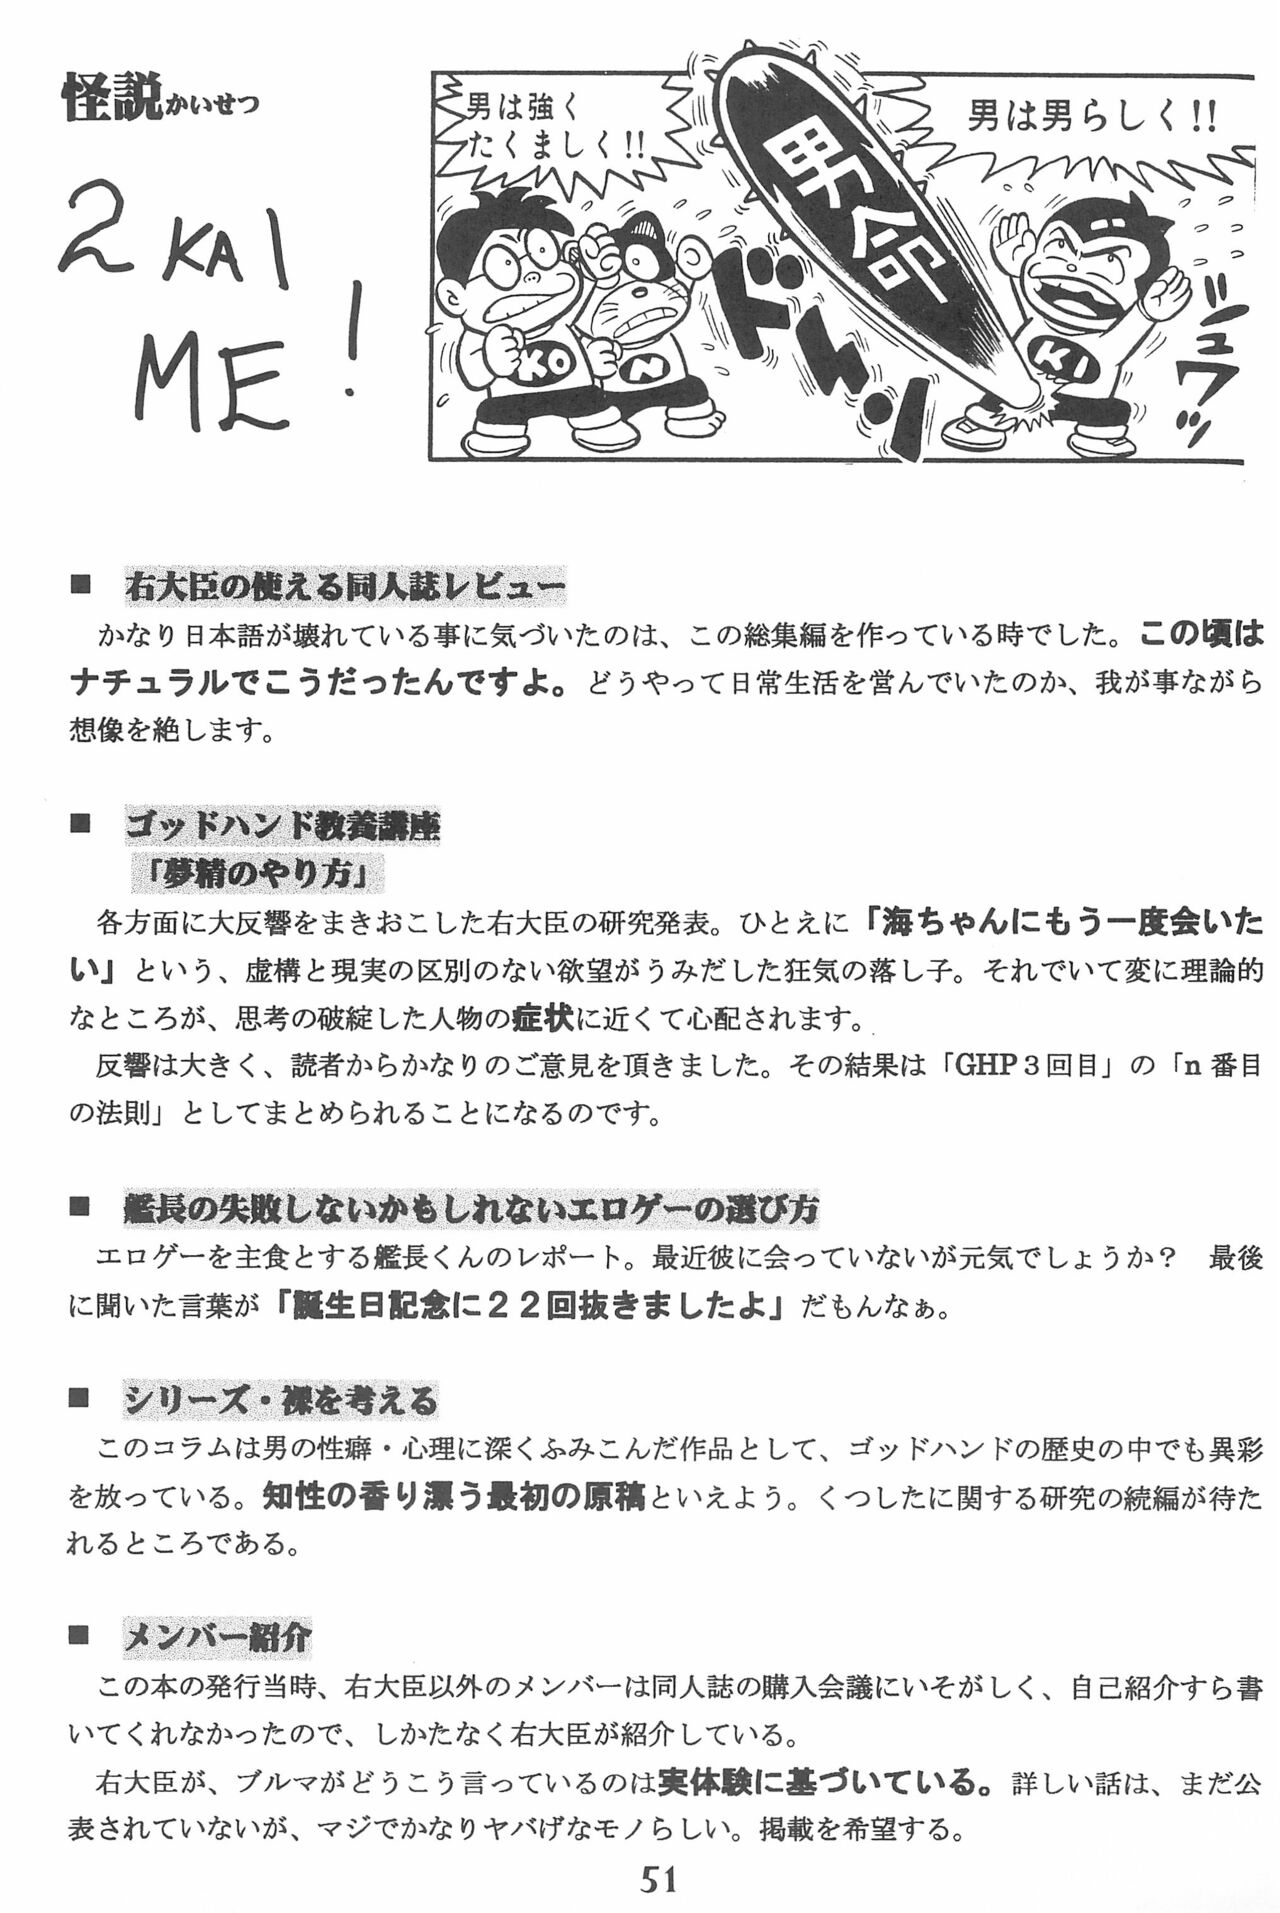 怪説かいせつ
2 KAI
ME!
男は強く
たくましく!!
男は男らしく!!
男命
ドーん
ジュワッ
KO
N
KI
■ 右大臣の使える同人誌レビュー
かなり日本語が壊れている事に気づいたのは、この総集編を作っている時でした。この頃は
ナチュラルでこうだったんですよ。どうやって日常生活を営んでいたのか、我が事ながら
想像を絶します。
■ ゴッドハンド教養講座
「夢精のやり方」
各方面に大反響をまきおこした右大臣の研究発表。ひとえに「海ちゃんにもう一度会いた
い」という、虚構と現実の区別のない欲望がうみだした狂気の落し子。それでいて変に理論的
なところが、思考の破綻した人物の症状に近くて心配されます。
反響は大きく、読者からかなりのご意見を頂きました。その結果は「GHP３回目」の「n 番目
の法則」としてまとめられることになるのです。
■ 艦長の失敗しないかもしれないエロゲーの選び方
エロゲーを主食とする艦長くんのレポート。最近彼に会っていないが元気でしょうか？　最後
に聞いた言葉が「誕生日記念に２２回抜きましたよ」だもんなぁ。
■ シリーズ・裸を考える
このコラムは男の性癖・心理に深くふみこんだ作品として、ゴッドハンドの歴史の中でも異彩
を放っている。知性の香り漂う最初の原稿といえよう。くつしたに関する研究の続編が待た
れるところである。
■ メンバー紹介
この本の発行当時、右大臣以外のメンバーは同人誌の購入会議にいそがしく、自己紹介すら書
いてくれなかったので、しかたなく右大臣が紹介している。
右大臣が、ブルマがどうこう言っているのは実体験に基づいている。詳しい話は、まだ公
表されていないが、マジでかなりヤバげなモノらしい。掲載を希望する。
51